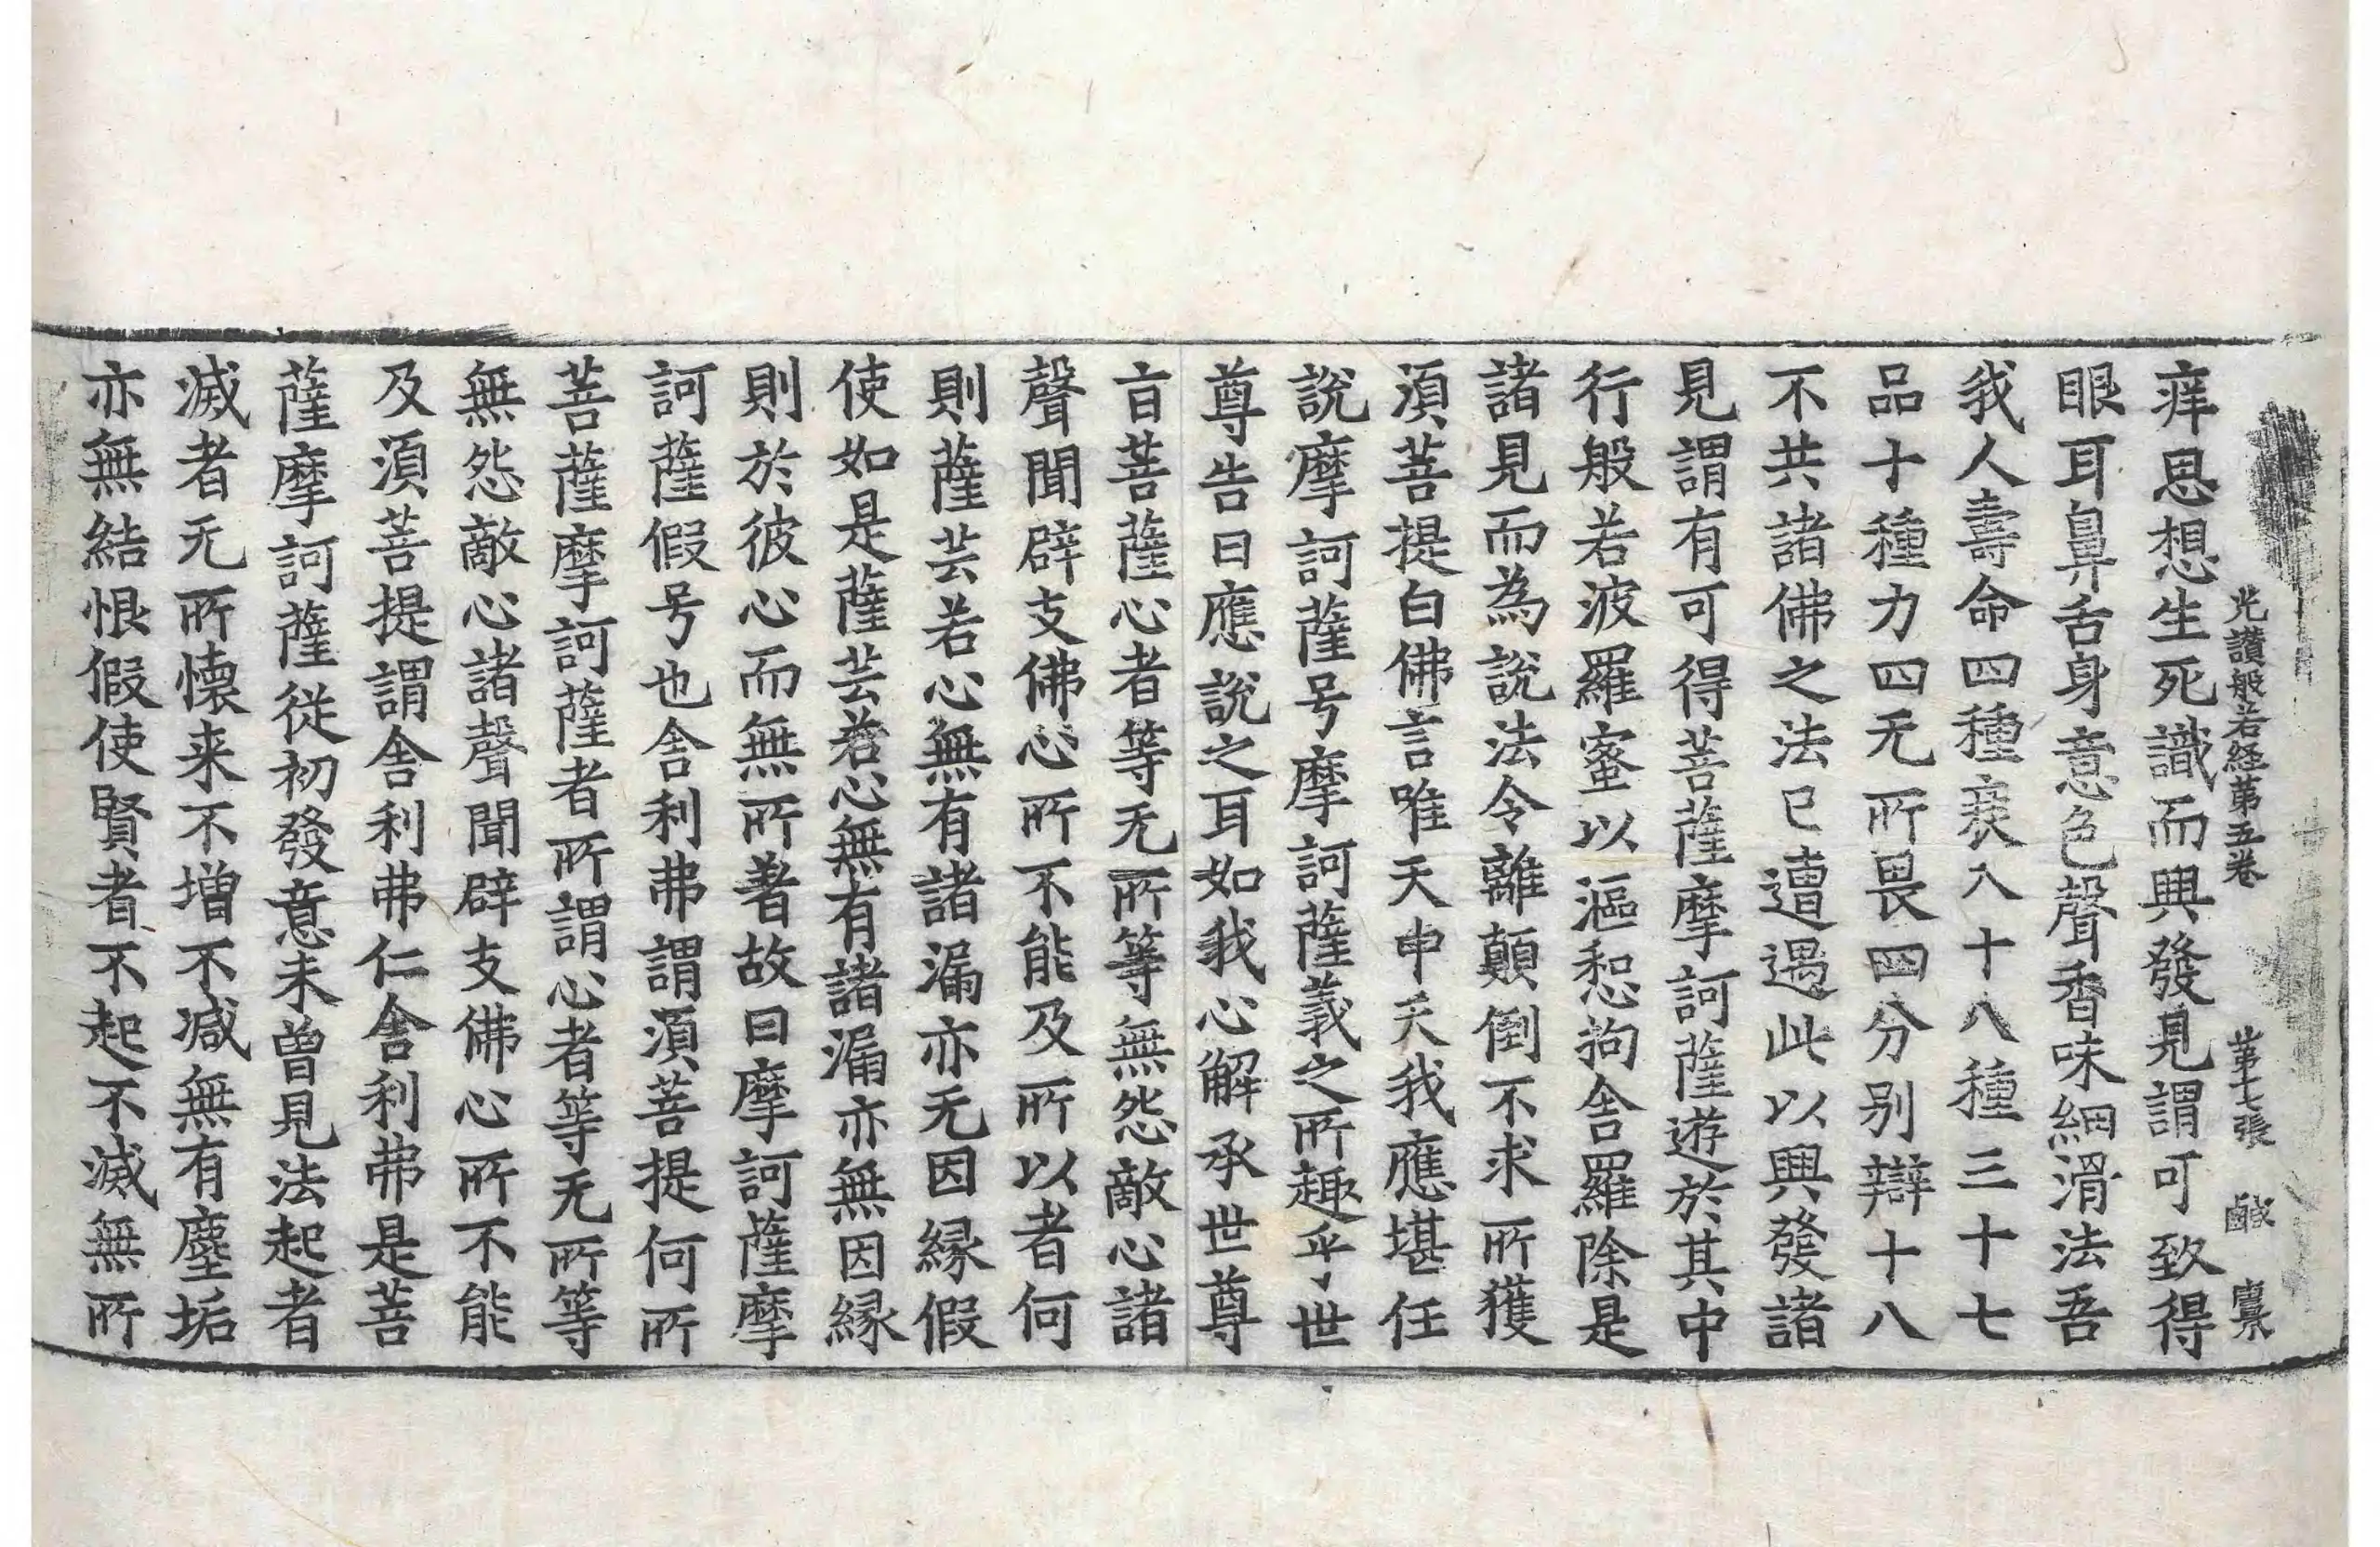 光讃般若経第五卷 第十七張 醎
痒思想生死識而興發見謂可致得
眼耳鼻舌身意色聲香味細滑法吾
我人壽命四種衰入十八種三十七
品十種力四无所畏四分别辯十八
不共諸佛之法已遭遇此以興發諸
見謂有可得菩薩摩訶薩遊於其中
行般若波羅蜜以漚惒拘舎羅除是
諸見而為說法令離顛倒不求所獲
湏菩提白佛言唯天中天我應堪任
說摩訶薩号摩訶薩義之所趣乎世
尊告曰應說之耳如我心解承世尊
言菩薩心者等无所等無怨敵心諸
聲聞辟支佛心所不能及所以者何
則薩芸若心無有諸漏亦无因縁假
使如是薩芸若心無有諸漏亦無因縁
則於彼心而無所著故曰摩訶薩摩
訶薩假号也舎利弗謂湏菩提何所
菩薩摩訶薩者所謂心者等无所等
無怨敵心諸聲聞辟支佛心所不能
及湏菩提謂舎利弗仁舎利弗是菩
薩摩訶薩從初發意未曽見法起者
滅者无所懐来不増不减無有塵垢
亦無結恨假使賢者不起不滅無所